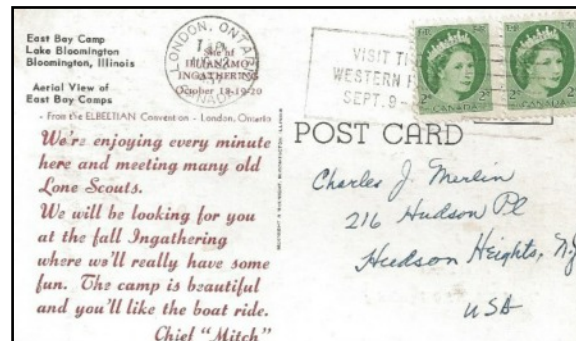 East Bay Camp
Lake Bloomington
Bloomington, Illinois
Aerial View of
East Bay Camps
Site of
ILLIANAMO
INGATHERING
October 18-19-20
LONDON, ONTARIO
CANADA
- From the ELBEETIAN Convention - London, Ontario
We're enjoying every minute
here and meeting many old
Lone Scouts.
We will be looking for you
at the fall Ingathering
where we'll really have some
fun. The camp is beautiful
and you'll like the boat ride.
Chief "Mitch"
VISIT
WESTERN
SEPT. 9 -
2 CANADA 2
2 CANADA 2
POST CARD
Charles J. Merlin
216 Hudson Pl
Hudson Heights, N.J
USA